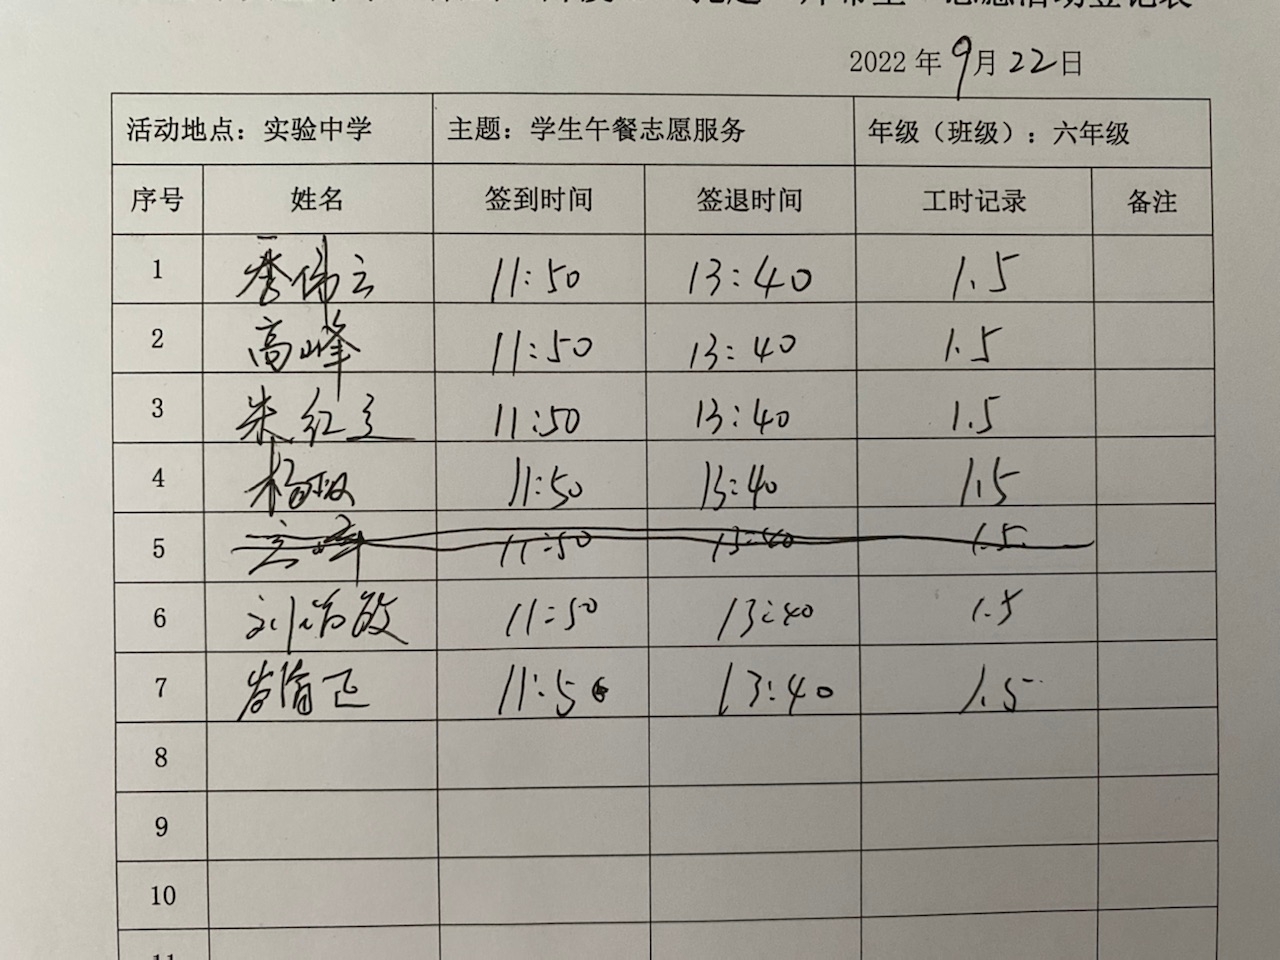 志愿活动登记表
2022年9月22日
活动地点：实验中学 主题：学生午餐志愿服务 年级（班级）：六年级
序号 姓名 签到时间 签退时间 工时记录 备注
1 11:50 13:40 1.5
2 高峰 11:50 13:40 1.5
3 朱红立 11:50 13:40 1.5
4 杨 11:50 13:40 1.5
5 11:50 13:40 1.5
6 刘 敏 11:50 13:40 1.5
7 11:50 13:40 1.5
8
9
10
11